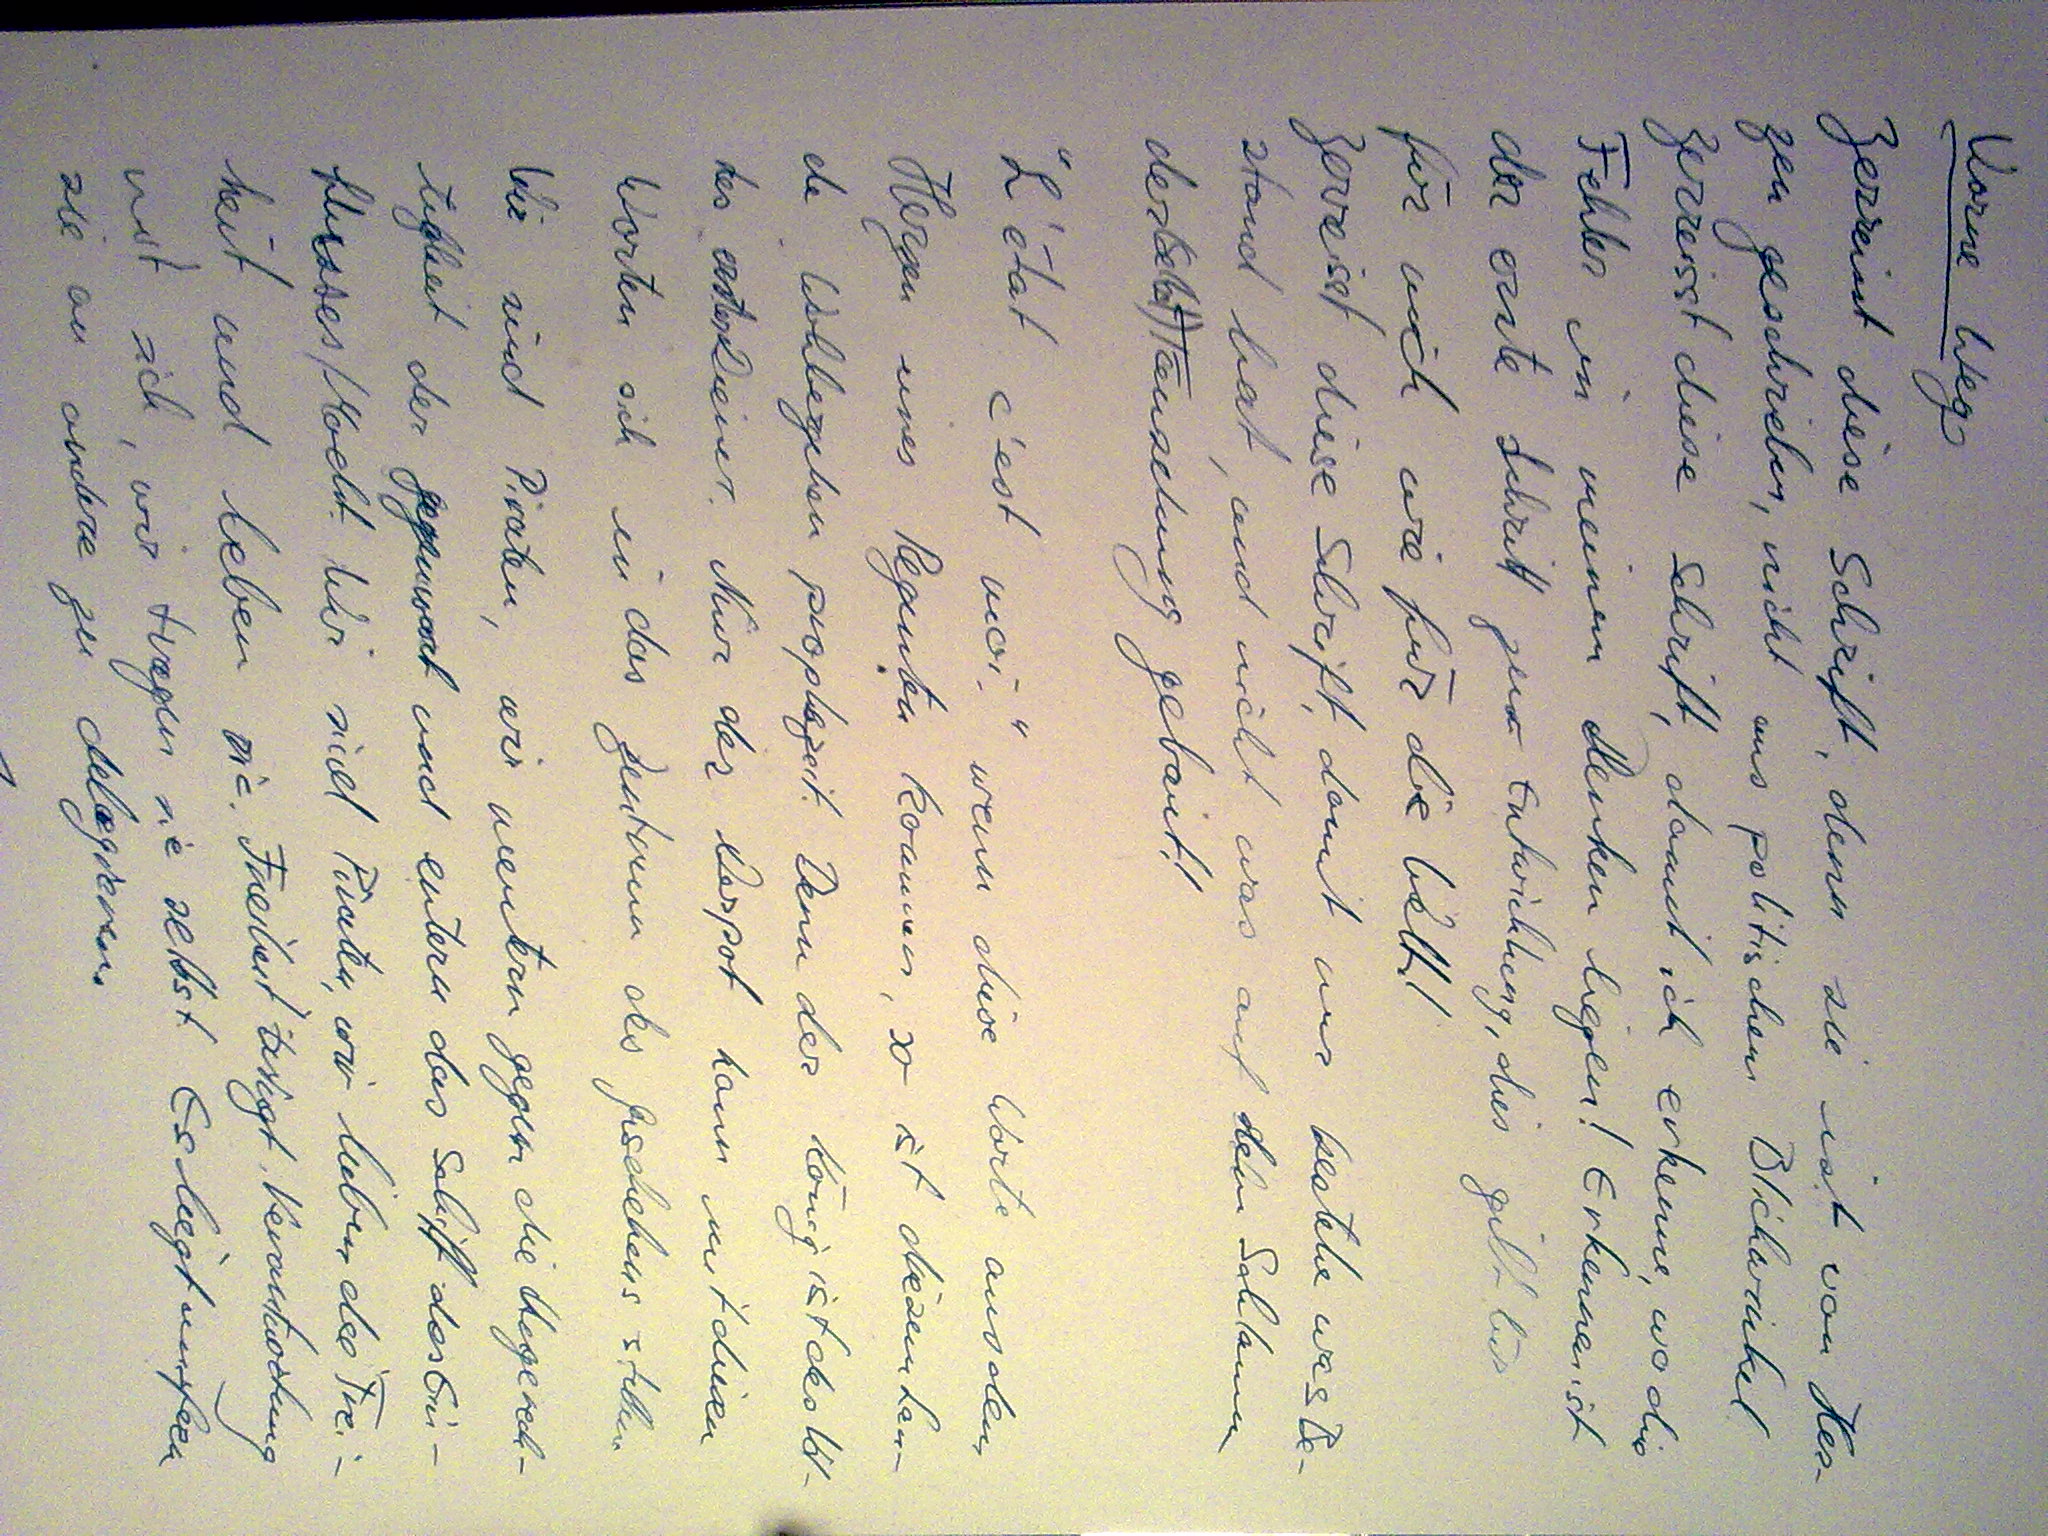 Vorne Weg
Zerreist diese Schrift, denn sie ist von Her-
zen geschrieben, nicht aus politischem Blickwinkel
Zerreisst diese Schrift, damit ich erkenne, wo die
Fehler in meinem Denken liegen! Erkennen ist
der erste Schritt zur Entwicklung, dies gilt
für mich wie für die Welt!
Zerreisst diese Schrift, damit nur bestehe was Be-
stand hat, und nicht was auf dem Schlamm
der Täuschung gebaut!
"L'état c'est moi." wenn diese Worte aus dem
Herzen eines Regenten kommen, so ist diesem Lan-
de Wohlergehen prophezeit. Denn der König ist des
Nur der Despot kann mit diesen
Worten sich in das Zentrum des stellen
Wir sind Piraten, wir meutern gegen die Ungerech-
tigkeit der gegenwart und entern das Schiff des Ein-
flusses/Macht. Wir sind Piraten, wir lieben die Frei-
heit und leben sie. Freiheit trägt Verantwortung
mit sich, wir tragen sie selbst. Es liegt uns fern
sie an andere zu delegieren.